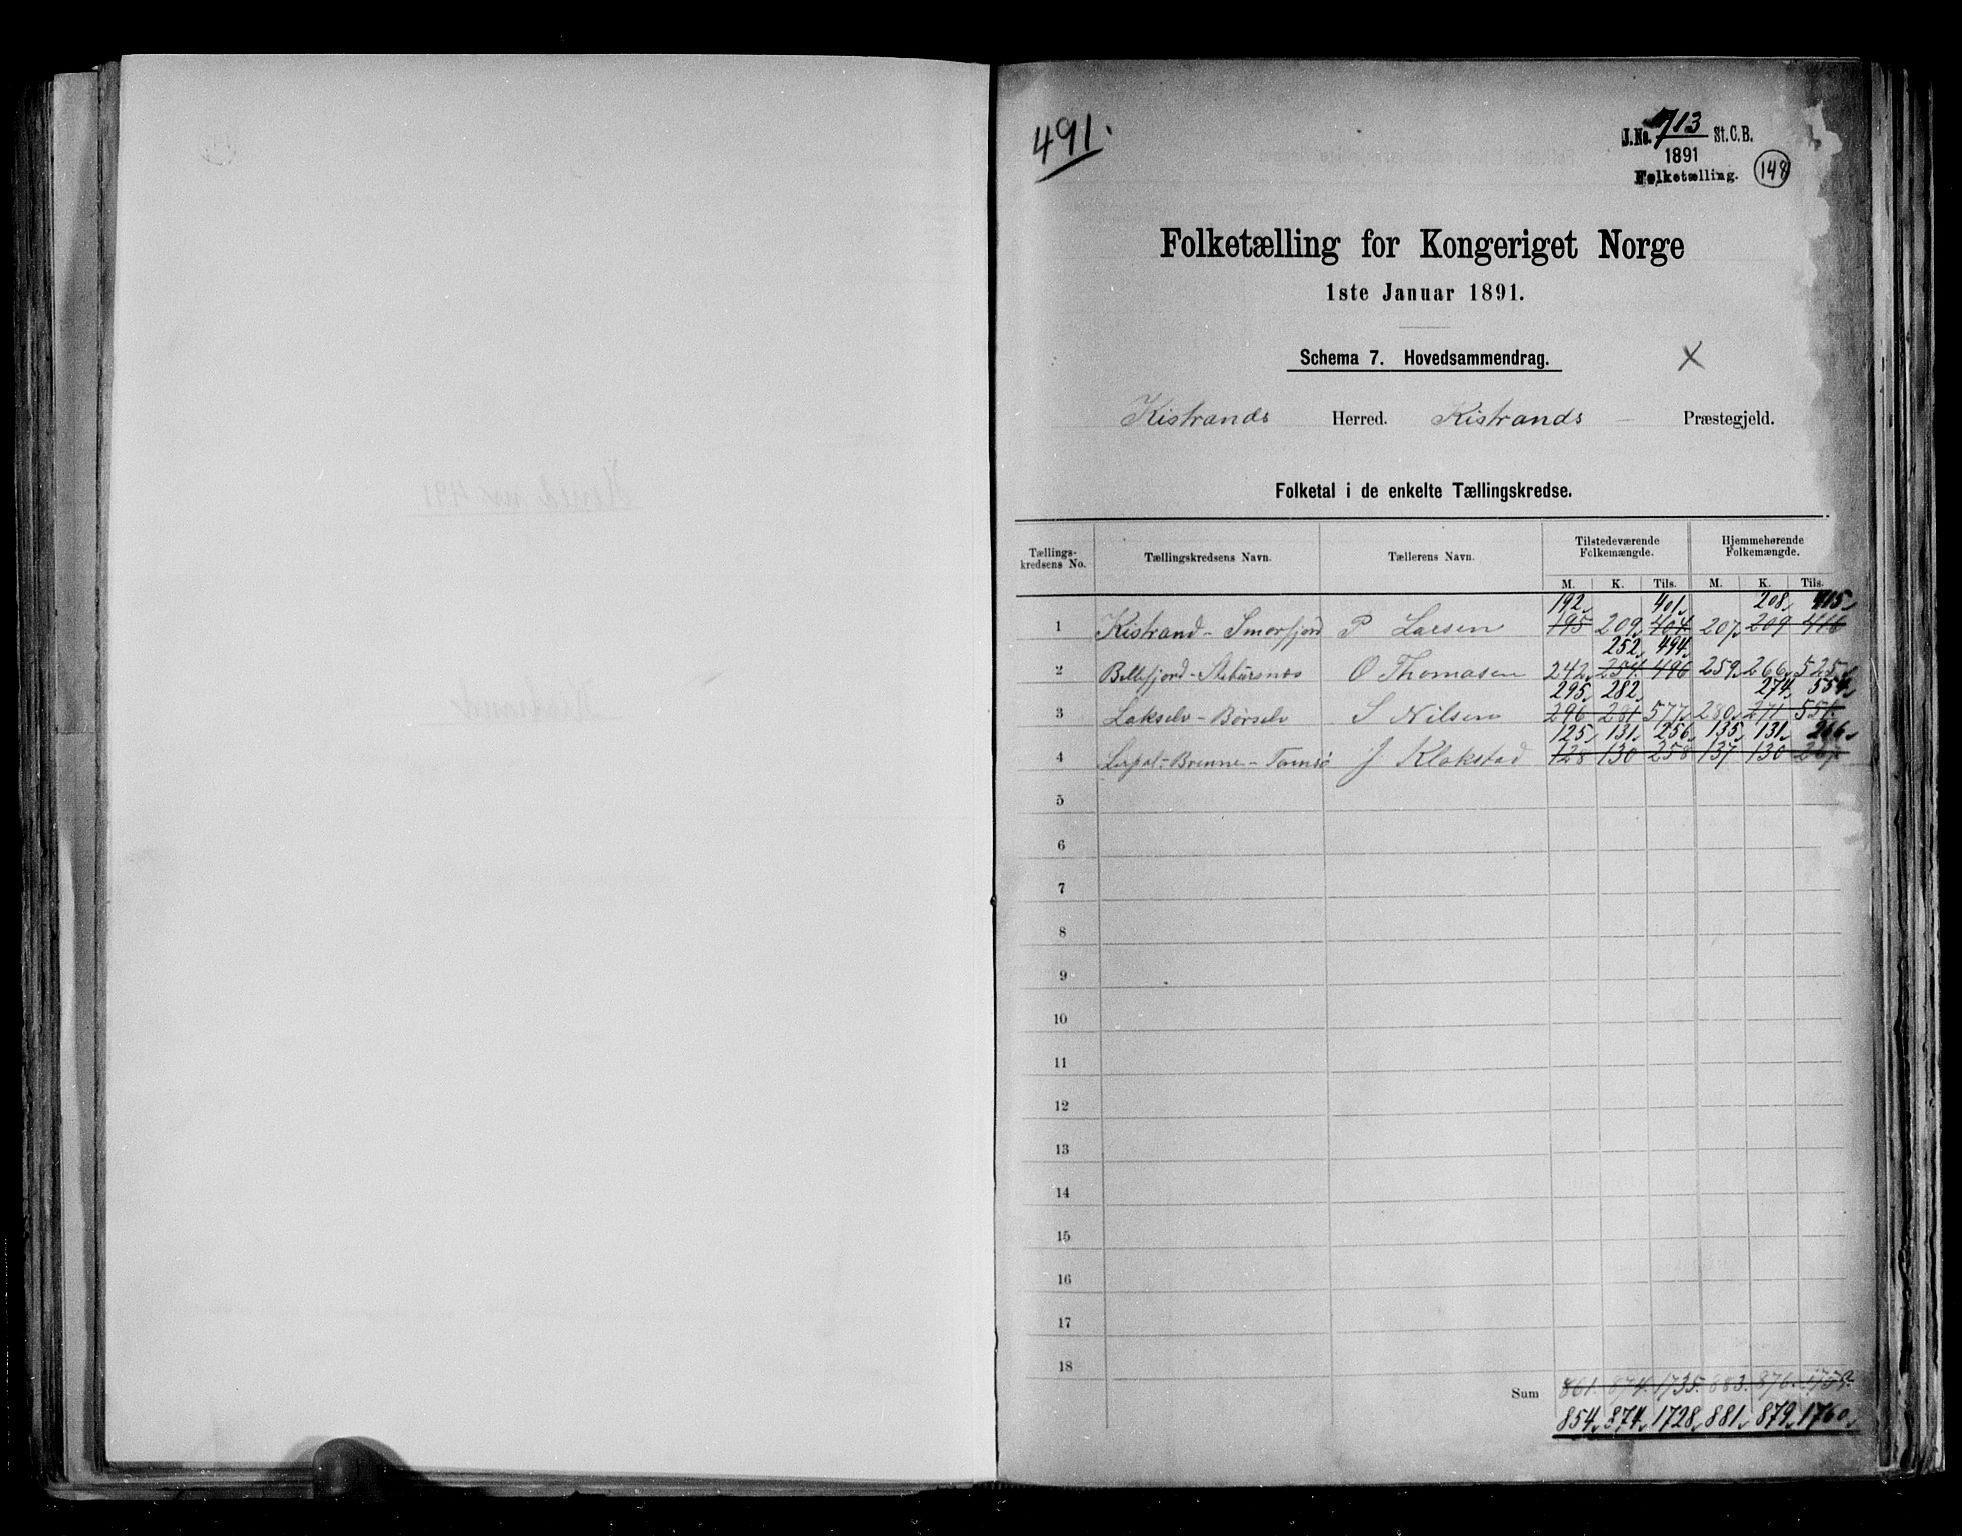 491.
J.No. 713 St.C.B.
1891
Folketælling. 148
Folketælling for Kongeriget Norge
1ste Januar 1891.
Schema 7. Hovedsammendrag.
X
Kistrands Herred. Kistrands Præstegjeld.
Folketal i de enkelte Tællingskredse.
Tællings-kredsens No. Tællingskredsens Navn. Tællerens Navn. Tilstedeværende Folkemængde. Hjemmehørende Folkemængde.
M. K. Tils. M. K. Tils.
192 401 208 415
1 Kistrand - Smorfjord P Larsen 195 209 404 207 209 416
252 494
2 Billefjord - O Thomasen 242 254 496 259 266 525
295 282 274 554
3 Lakselv - Børselv S Nilsen 296 281 577 280 271 551
125 131 256 135 131 266
4 - Brenne - Tamsø J Klokstad 128 130 258 137 130 267
5
6
7
8
9
10
11
12
13
14
15
16
17
18
Sum 861. 874. 1735. 883. 876. 1759.
854 874 1728 881 879 1760